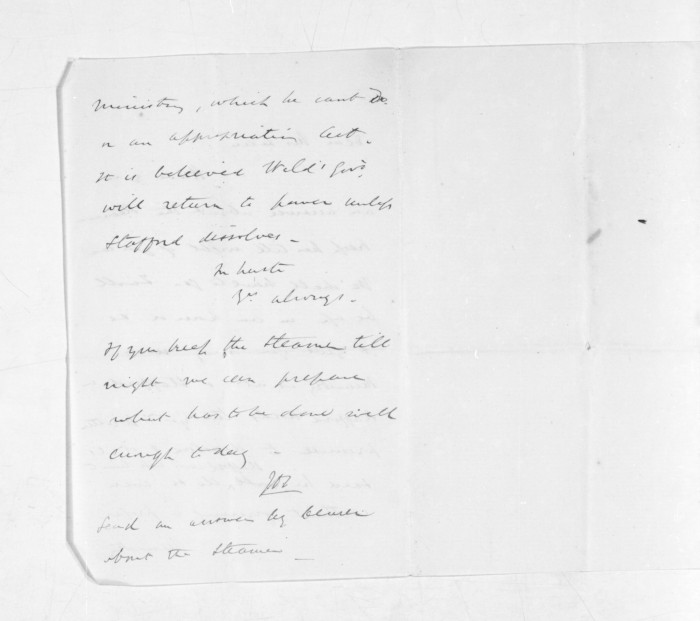 Ministry, which he cant do
n an appropriation Act.
It is believed Weld's Govt.
will return to power unless
Stafford dissolves –
In haste
Yrs always –
If you keep the Steamer till
night we can prepare
what has to be done well
enough to day
Send an answer by bearer
about the Steamer –